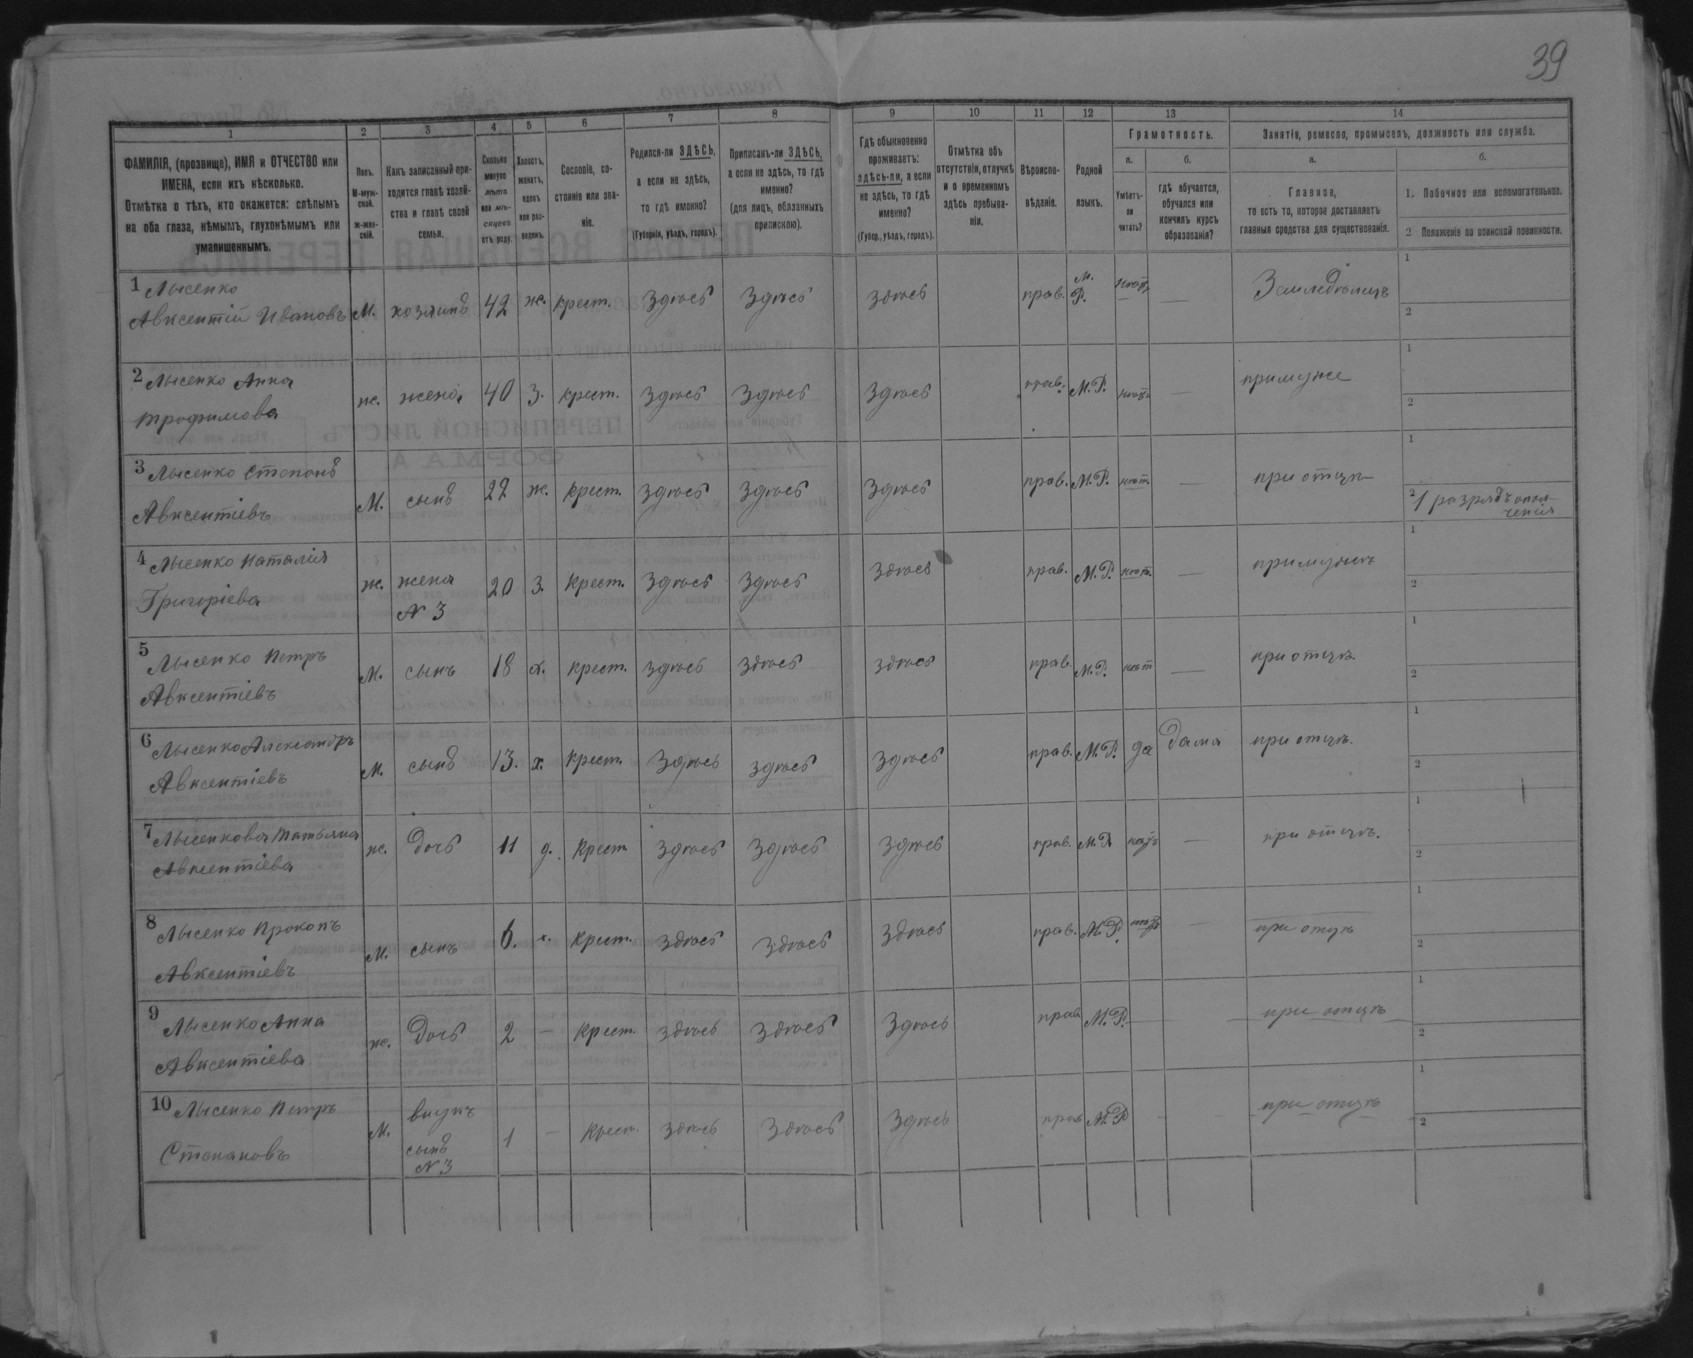 39
1 2 3 4 5 6 7 8 9 10 11 12 13 14
ФАМИЛІЯ, (прозвище), ИМЯ и ОТЧЕСТВО или
ИМЕНА, если ихъ нѣсколько.
Отмѣтка о тѣхъ, кто окажется: слѣпымъ
на оба глаза, нѣмымъ, глухонѣмымъ или
умалишеннымъ.
Полъ.
М-муж-
ской.
ж-жен-
скій.
Какъ записанный при-
ходится главѣ хозяй-
ства и главѣ своей
семьи.
Сколько
минуло
лѣтъ
или мѣ-
сяцевъ
отъ роду.
Холостъ,
женатъ,
вдовъ
или раз-
веденъ.
Сословіе, со-
стояніе или зва-
ніе.
Родился-ли ЗДѢСЬ,
а если не здѣсь,
то гдѣ именно?
(Губернія, уѣздъ, городъ).
Приписанъ-ли ЗДѢСЬ,
а если не здѣсь, то гдѣ
именно?
(для лицъ, обязанныхъ
припискою).
Гдѣ обыкновенно
проживаетъ:
здѣсь-ли, а если
не здѣсь, то гдѣ
именно?
(Губер., уѣздъ, городъ).
Отмѣтка объ
отсутствіи, отлучкѣ
и о временномъ
здѣсь пребыва-
ніи.
Вѣроиспо-
вѣданіе.
Родной
языкъ.
Грамотность.
а.
Умѣетъ-
ли
читать?
б.
гдѣ обучается,
обучался или
кончилъ курсъ
образованія?
Занятія, ремесло, промыселъ, должность или служба.
а.
Главное,
то есть то, которое доставляетъ
главныя средства для существованія.
б.
1. Побочное или вспомогательное.
2 Положеніе по воинской повинности.
1 Лысенко
Авксентій Ивановъ М. хозяинъ 42 ж. крест. Здѣсь Здѣсь здѣсь прав. М. Р. нѣтъ — Земледѣлецъ 1 2
2 Лысенко Анна
Трофимова ж. жена 40 З. крест. Здѣсь Здѣсь Здѣсь прав. М.Р. нѣтъ — при мужѣ 1 2
3 Лысенко Степанъ
Авксентіевъ М. сынъ 22 ж. крест. Здѣсь Здѣсь Здѣсь прав. М.Р. нѣт. — при отцѣ 1
2 1 разрядъ опол-
ченія
4 Лысенко Наталія
Григоріева ж. жена
N 3 20 З. крест. Здѣсь Здѣсь Здѣсь прав. М.Р. нѣт. — при мужѣ 1 2
5 Лысенко Петръ
Авксентіевъ М. сынъ 18 х. крест. здѣсь здѣсь здѣсь прав. М.Р. нѣт — при отцѣ 1 2
6 Лысенко Александръ
Авксентіевъ М. сынъ 13. х. крест. Здѣсь здѣсь Здѣсь прав. М.Р. да дама при отцѣ. 1 2
7 Лысенкова Татьяна
Авксентіева ж. дочь 11 д. крест Здѣсь Здѣсь Здѣсь прав. М.Р нѣтъ — при отцѣ. 1 2
8 Лысенко Прокопъ
Авксентіевъ М. сынъ 6. х. крест. здѣсь здѣсь здѣсь прав. М.Р. нѣтъ — при отцѣ 1 2
9 Лысенко Анна
Авксентіева ж. дочь 2 — крест. здѣсь здѣсь Здѣсь прав М.Р. — при отцѣ 1 2
10 Лысенко Петръ
Степановъ М. внукъ
сынъ
N 3 1 — крест. здѣсь здѣсь Здѣсь прав М.Р — — при отцѣ 1 2